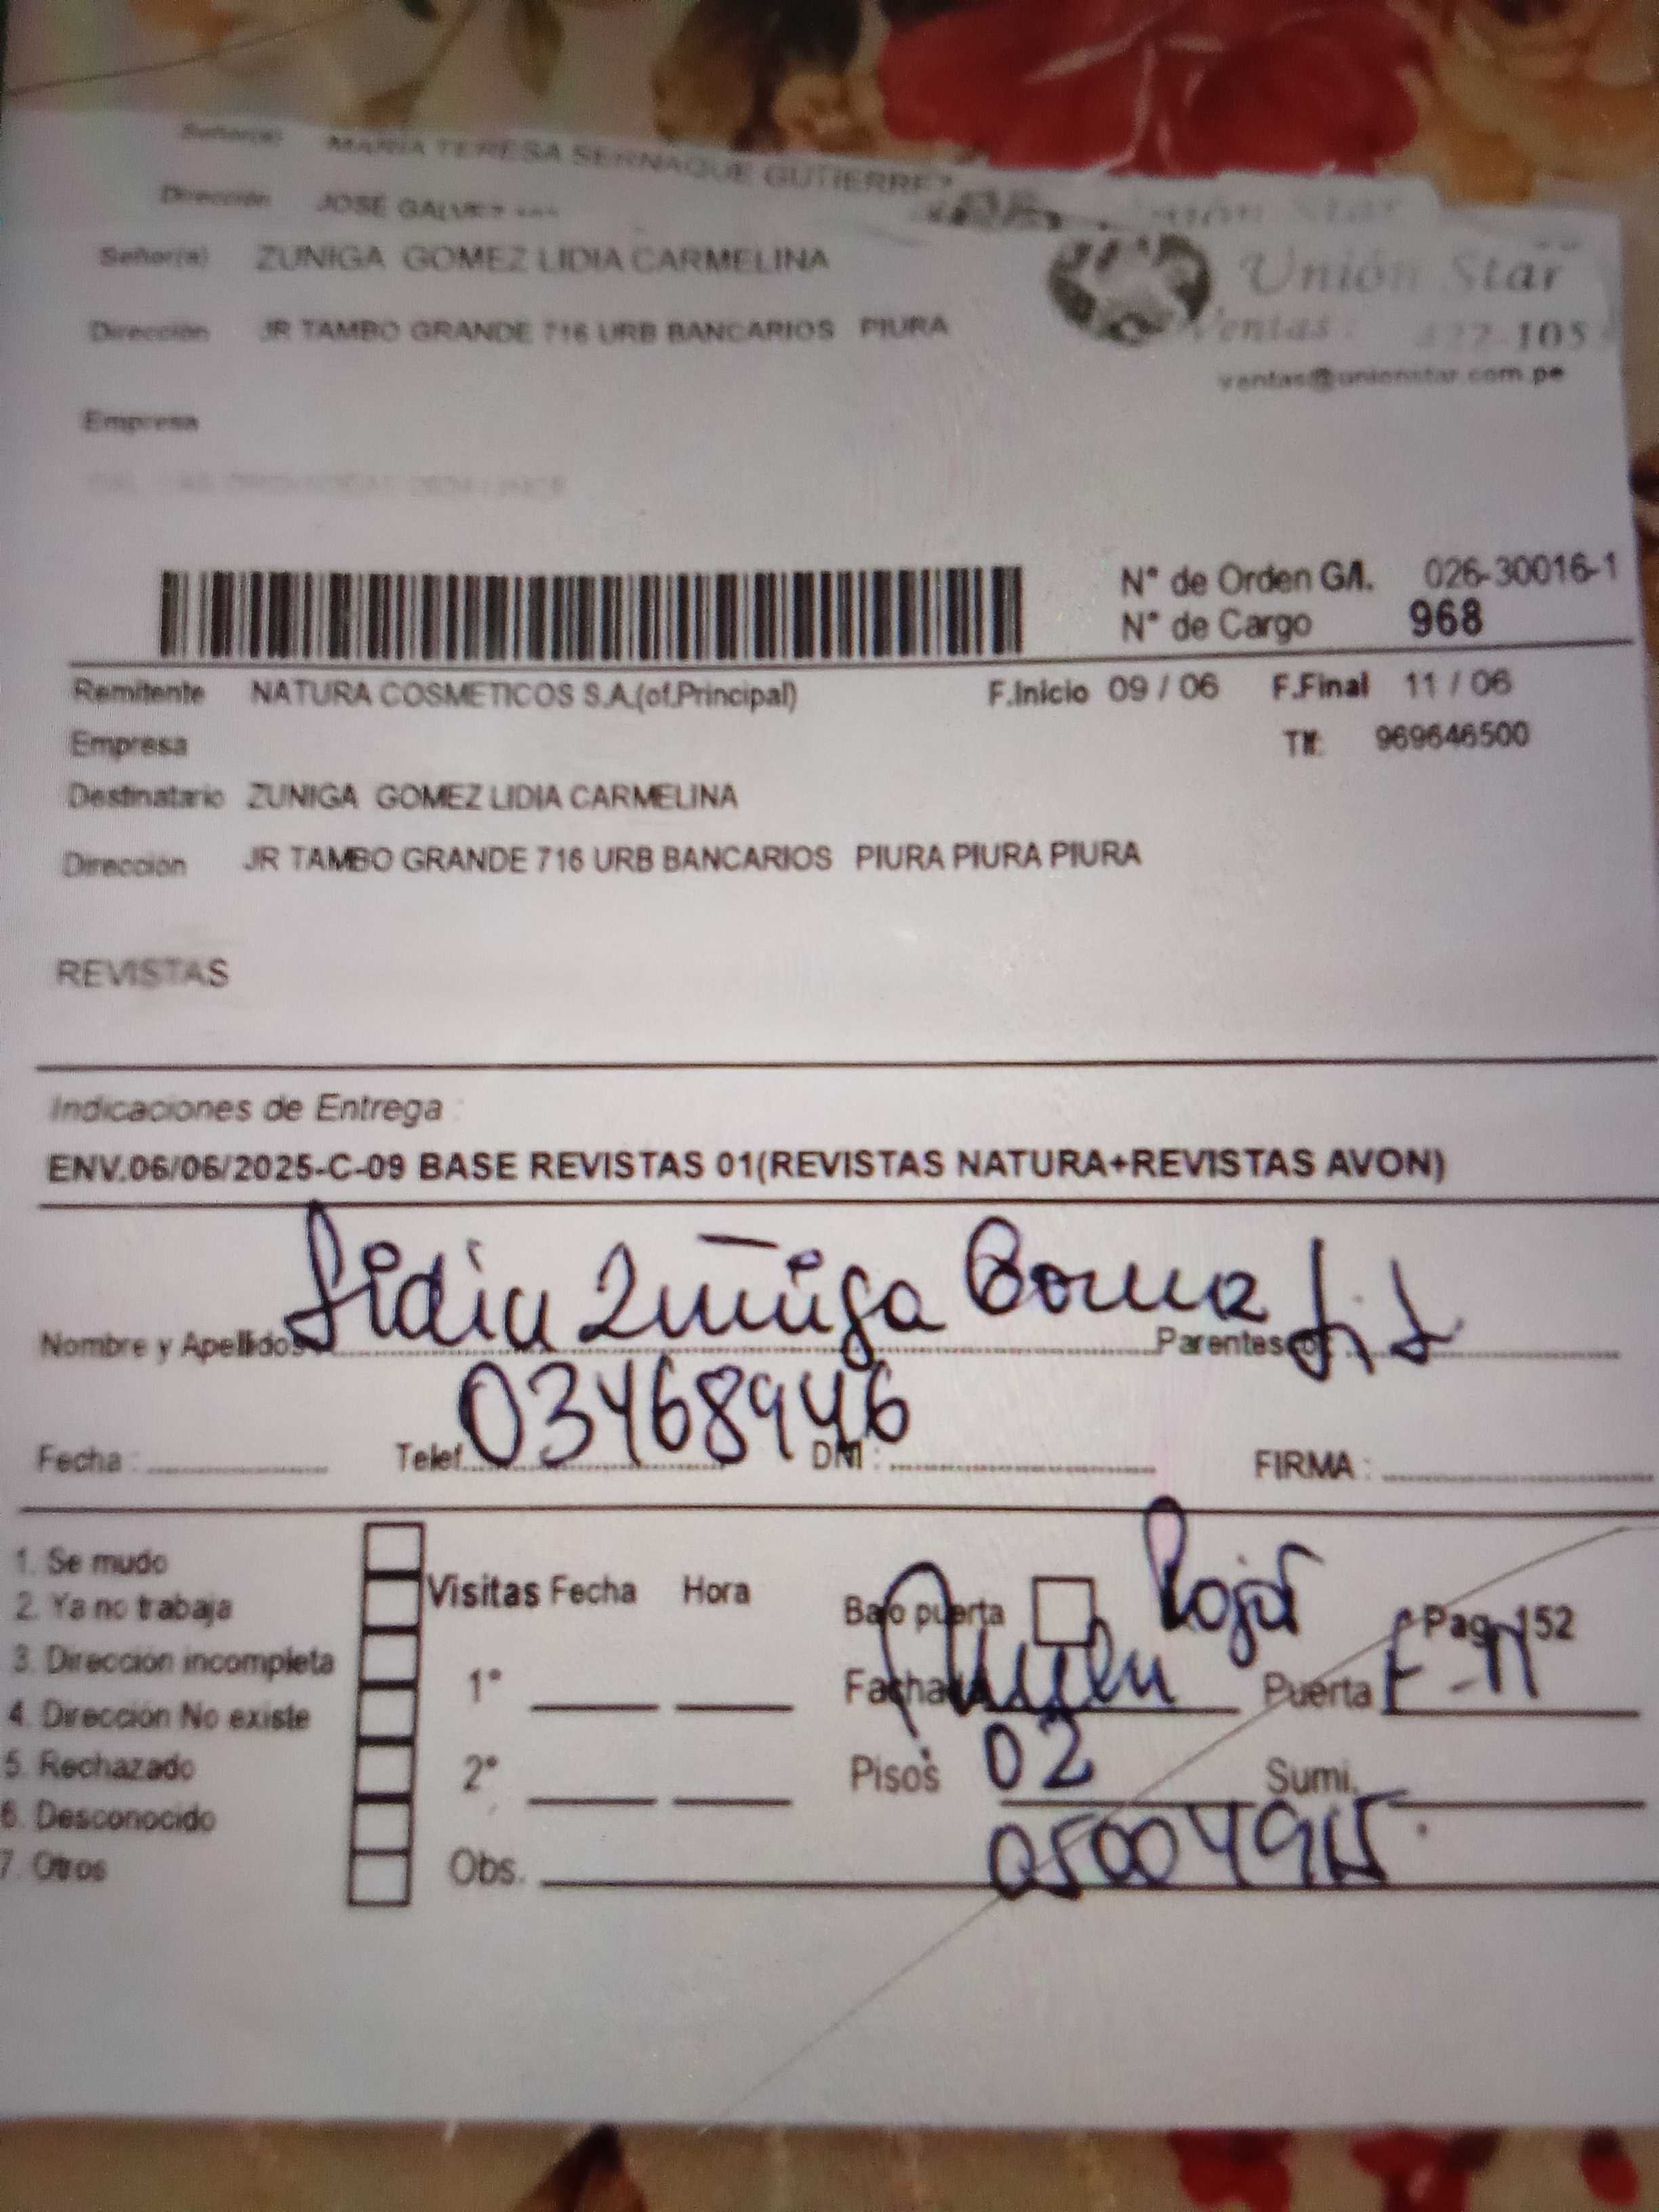 Señor(a) MARIA TERESA SERNAQUE GUTIERREZ
Dirección JOSE GALVEZ
Unión Star
Señor(a) ZUNIGA GOMEZ LIDIA CARMELINA
Unión Star
Dirección JR TAMBO GRANDE 716 URB BANCARIOS PIURA
Ventas: 422-105
ventas@unionstar.com.pe
Empresa
N° de Orden G/I. 026-30016-1
N° de Cargo 968
Remitente NATURA COSMETICOS S.A.(of.Principal) F.Inicio 09 / 06 F.Final 11 / 06
Empresa Tlf: 969646500
Destinatario ZUNIGA GOMEZ LIDIA CARMELINA
Dirección JR TAMBO GRANDE 716 URB BANCARIOS PIURA PIURA PIURA
REVISTAS
Indicaciones de Entrega :
ENV.06/06/2025-C-09 BASE REVISTAS 01(REVISTAS NATURA+REVISTAS AVON)
Nombre y Apellidos Lidia Zuñiga Parentesco
03468946
Fecha : Telef. DNI : FIRMA :
1. Se mudo
2. Ya no trabaja
3. Dirección incompleta
4. Dirección No existe
5. Rechazado
6. Desconocido
7. Otros
Visitas Fecha Hora
1°
2°
Obs.
Bajo puerta Rojo Pag. 152
Fachada Puerta
Pisos 02 Sumi.